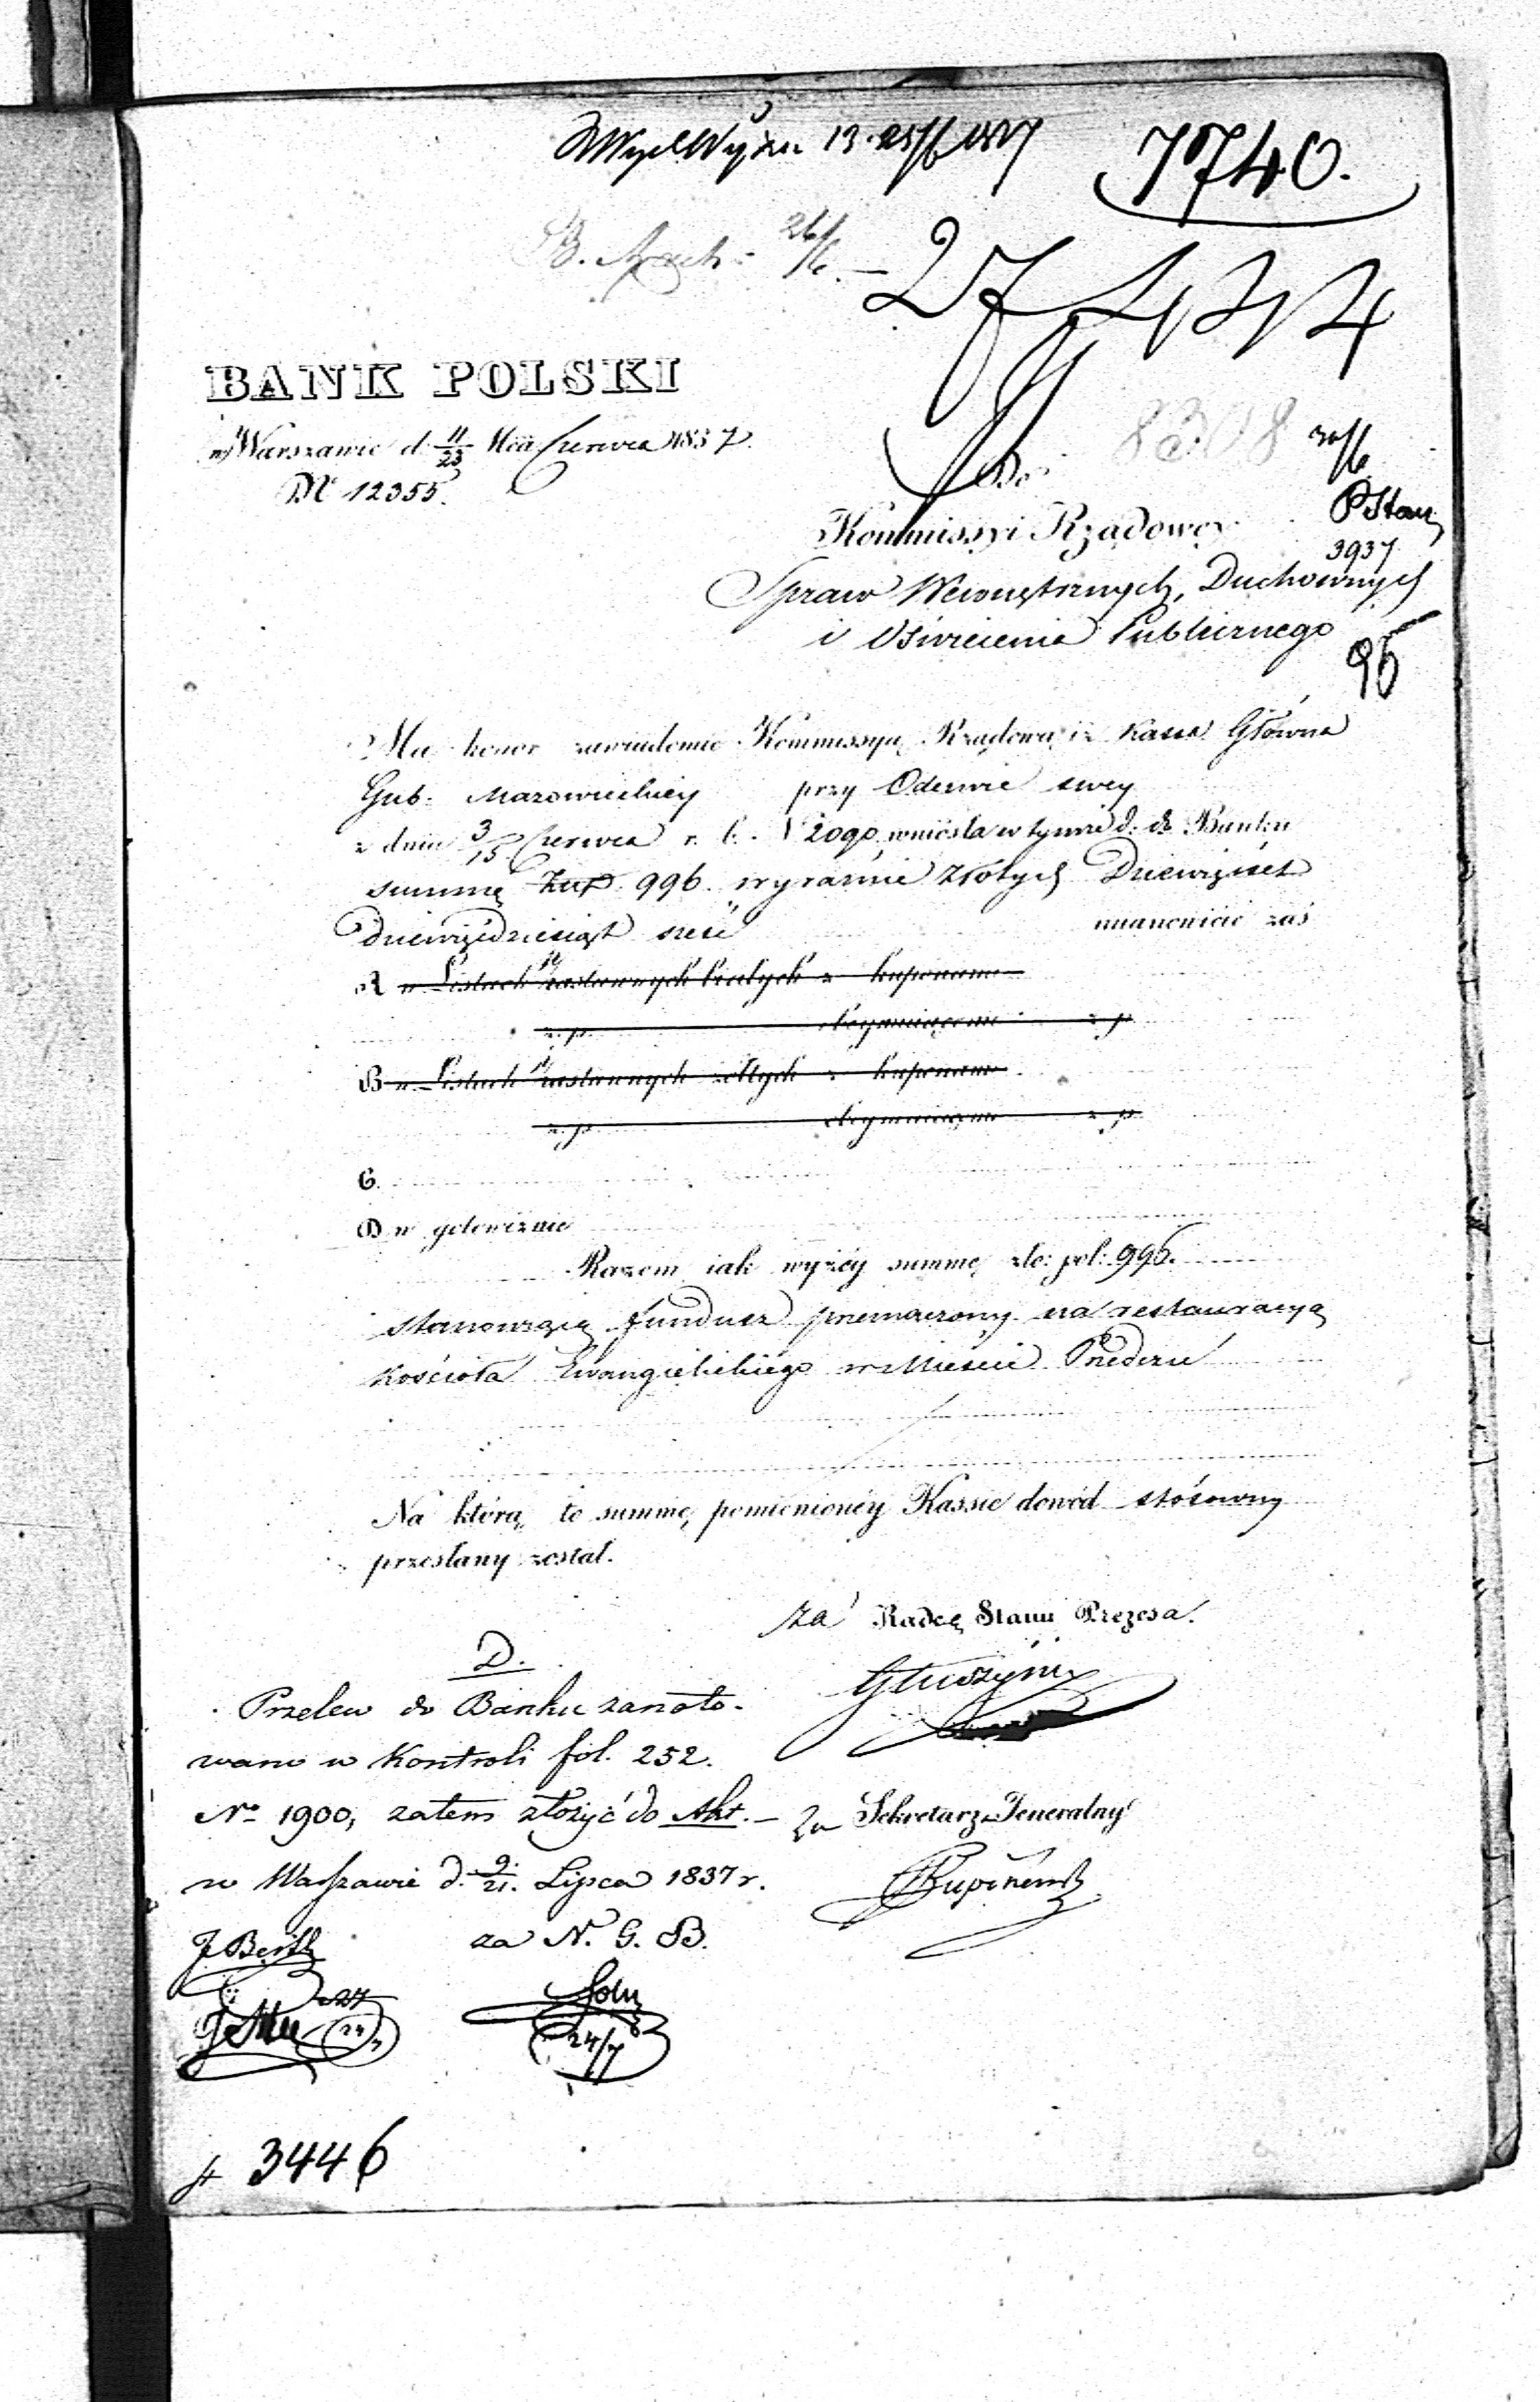 7740.
27434
BANK POLSKI
w Warszawie d. 11/23 Mca Czerwca 1837.
Nr 12355.
8308 30/6
Do
Kommissyi Rządowey
3937
Spraw Wewnętrznych, Duchownych
i Oświecenia Publicznego
96
Ma honor zawiadomić Kommissyą Rządową iż Kassa Główna
Gub: Mazowieckiey przy Odezwie swey
z dnia 3/15 Czerwca r. b. wniosła w tymże d. do Banku
summę Złp. 996. wyraźnie Złotych Dziewięćset
Dziewięćdziesiąt sześć mianowicie zaś
A w Listach zastawnych białych z kuponami
z. p. obeymuiącemi z. p
B w Listach zastawnych żółtych z kuponami
z. p. obeymuiącemi z. p
C.
D w gotowiznie
Razem iak wyżéy summę zło: pol: 996.
stanowiącą fundusz przeznaczony na restauracyą
Kościoła Ewangielickiego w Mieście Przedeczu
Na którą to summę pomienionéy Kassie dowód stósowny
przesłany został.
za Radcę Stanu Prezesa.
D.
Przelew do Banku zanoto-
wano w Kontroli fol. 252.
No 1900, zatem złożyć do Akt. –
za Sekretarz Jeneralny
w Warszawie d. 9/21. Lipca 1837 r.
za N. G. B.
24/7
3446